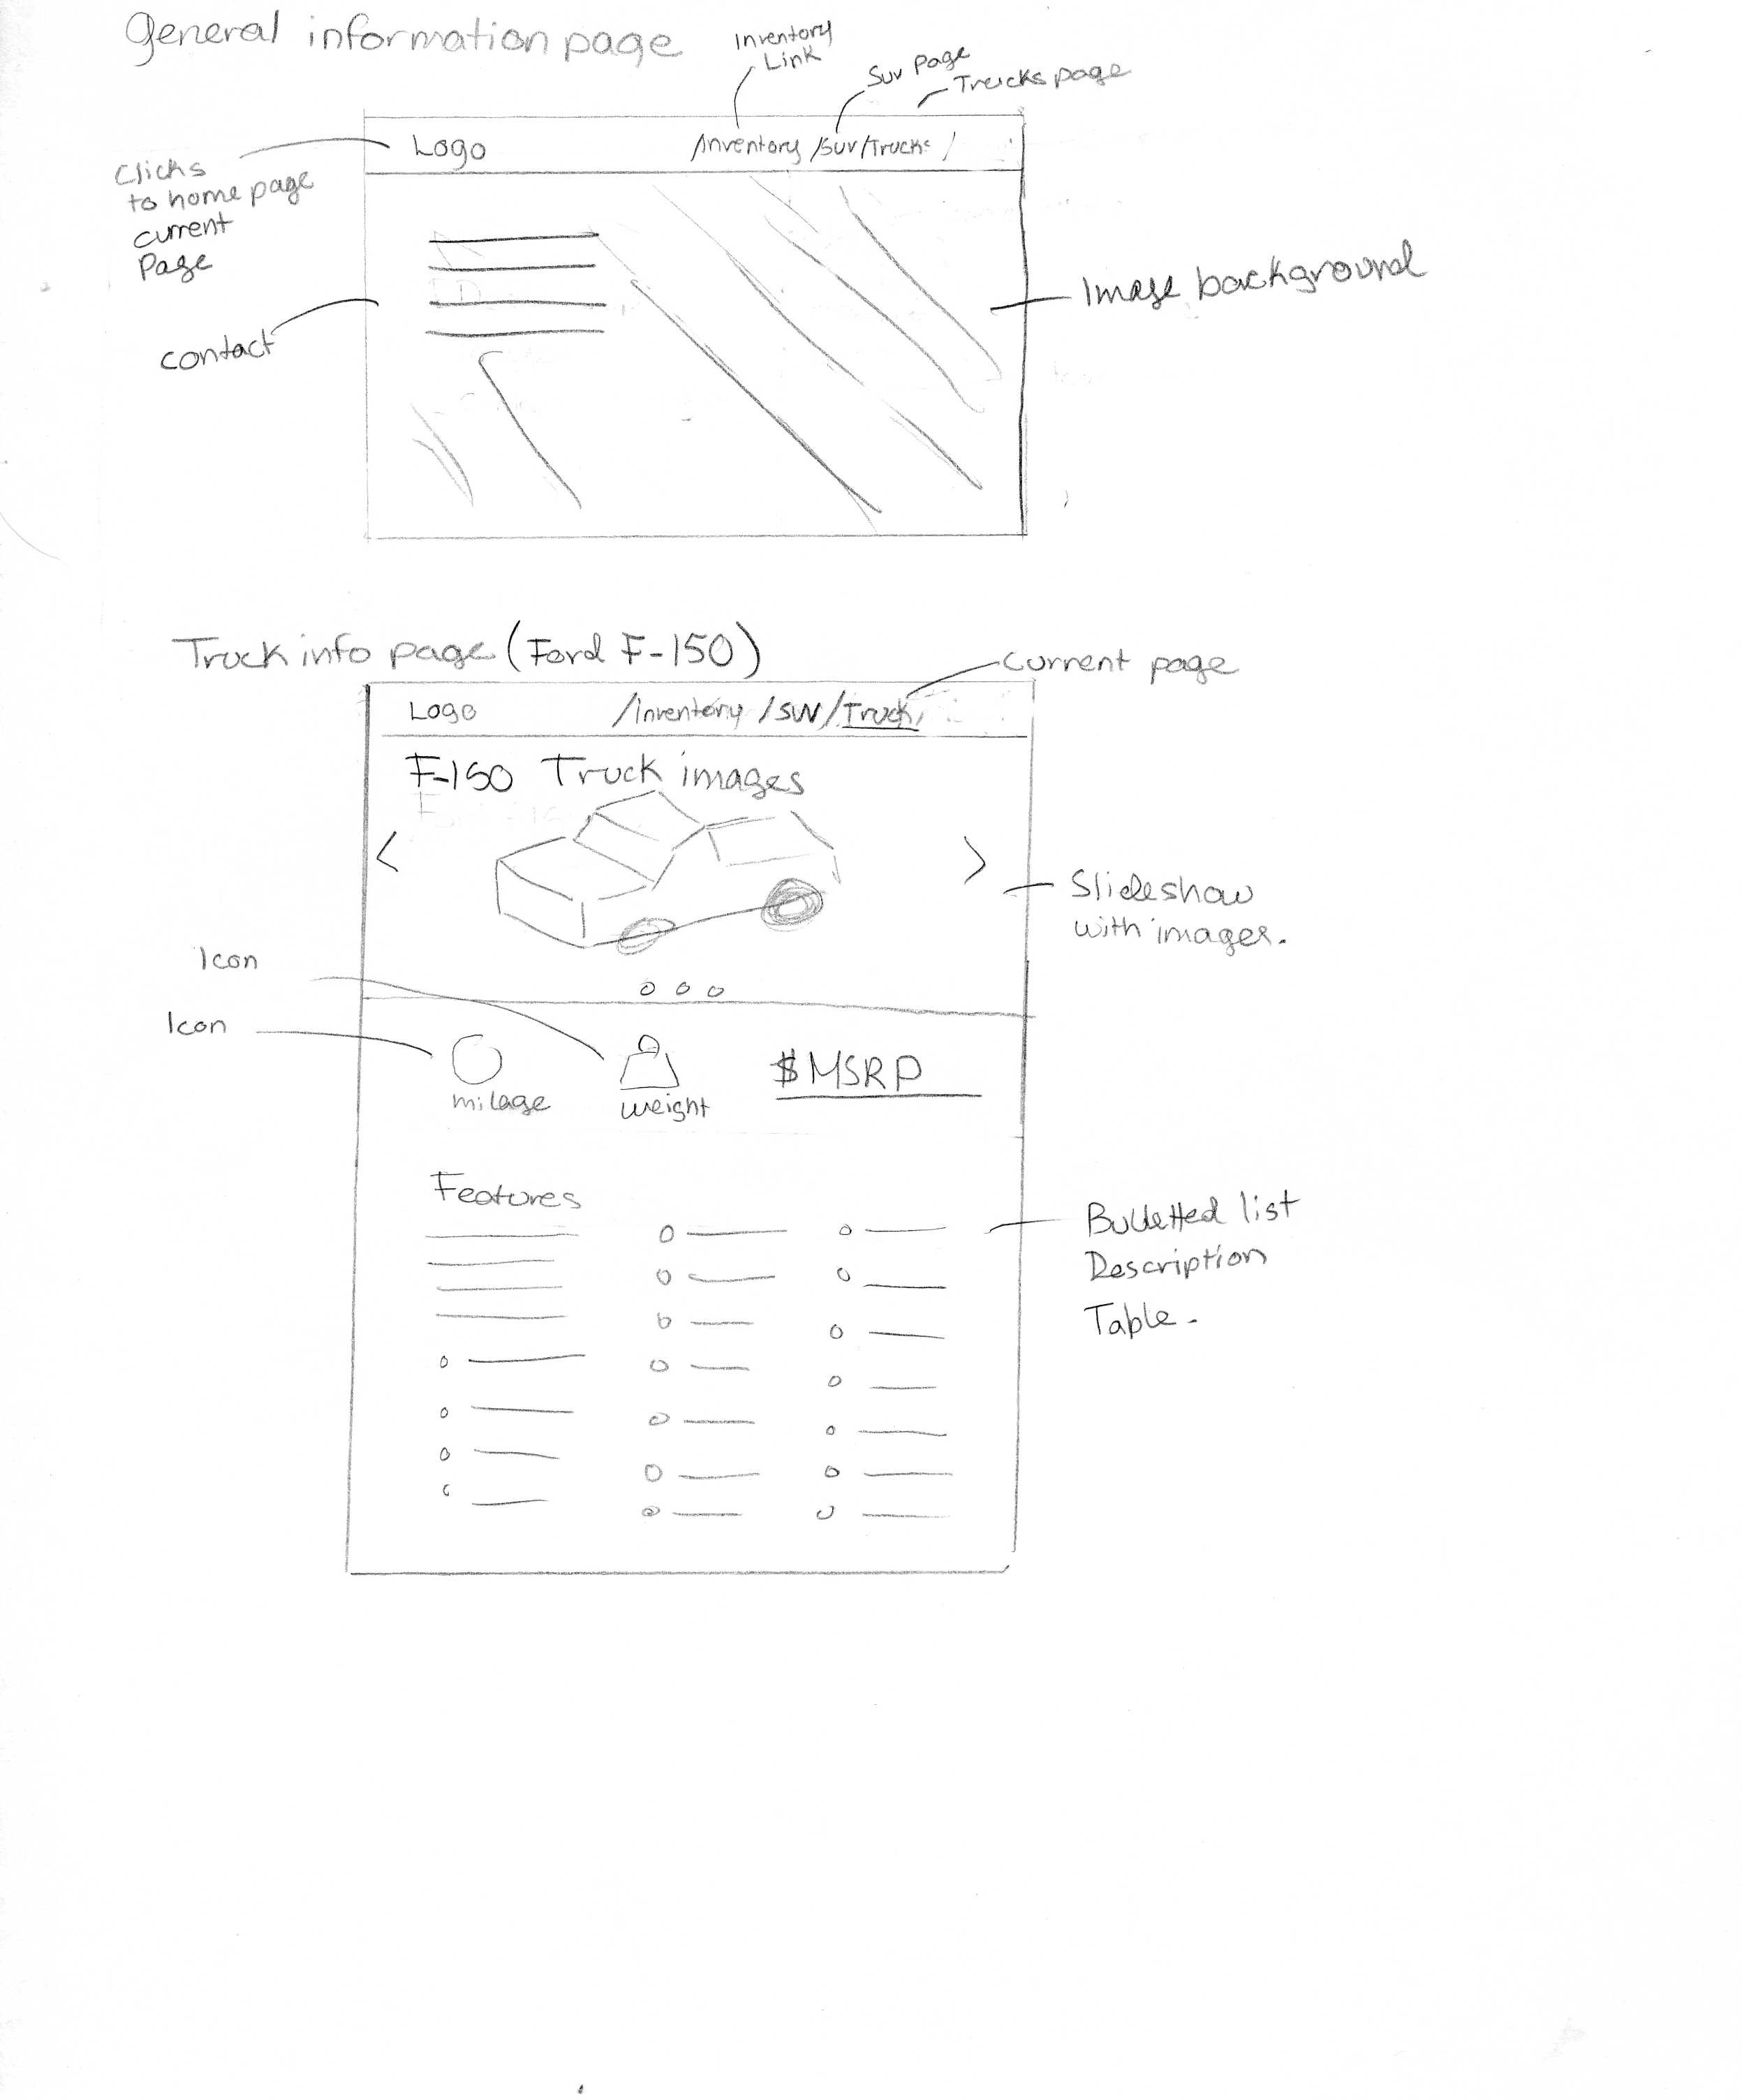 General information page
Inventory
Link
Suv Page
Trucks page
Logo
/Inventory /Suv/Trucks /
Clicks
to home page
current
Page
Image background
contact
Truck info page (Ford F-150)
Current page
Logo
/inventory /SUV/Truck/
F-150 Truck images
<
>
Slideshow
with images.
Icon
Icon
milage
weight
$MSRP
Features
Bulletted list
Description
Table.